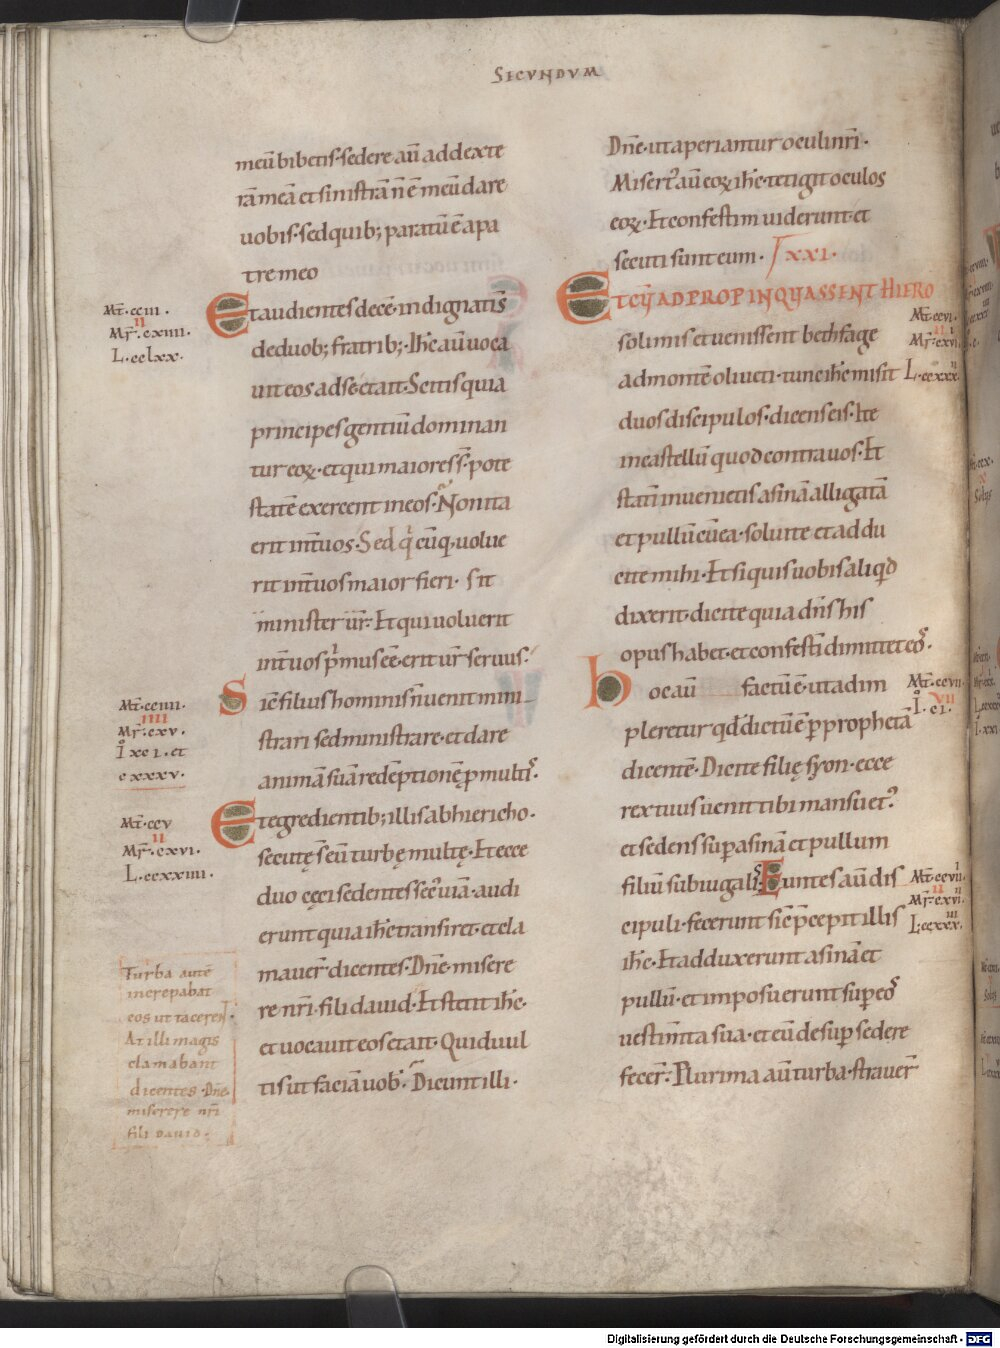 SECUNDUM
meū bibetis· sedere aū ad dexte
rā meā et sinistrā n̄ ē meū dare
uobis· sed quib; paratū ē a pa
tre meo
Et audientes decē indignati s̄
de duob; fratrib;· Ih̄c aū uoca
uit eos ad se et ait· Scitis quia
principes gentiū dominan
tur eoꝝ· et qui maiores s̄· pote
statē exercent in eos· Non ita
erit int̄ uos· Sed q̇cūq; uolue
rit int̄ uos maior fieri· sit
minister ur̄· Et qui uoluerit
int̄ uos p̄mus eē· erit ur̄ seruus·
Sic filius hominis n̄ uenit mini
strari sed ministrare· et dare
animā suā redēptionē ꝓ multis·
Et egredientib; illis ab hiericho·
secutę s̄ eū turbę multę· Et ecce
duo cęci sedentes sec̄ uiā· audi
erunt quia ih̄c transiret· et cla
mauer̄ dicentes· Dn̄e· misere
re nr̄i· fili dauid· Et stetit ih̄c·
et uocauit eos et ait· Quid uul
tis ut faciā uob̄· Dicunt illi·
Mt̄· cciii·
II
Mr̄· cxiiii·
L· cclxx·
Mt̄· cciiii·
IIII
Mr̄· cxv·
Io xci· et
cxxxv·
Mt̄· ccv
II
Mr̄· cxvi·
L· ccxxiiii·
Turba autē
increpabat
eos ut tacerent·
At illi magis
clamabant
dicentes· Dn̄e
miserere nr̄i
fili DAUID·
Dn̄e· ut aperiantur oculi nr̄i·
Misert᾽ aū eoꝝ ih̄c· tetigit oculos
eoꝝ· Et confestim uiderunt· et
secuti sunt eum· LXXI·
ET CŪ ADPROPINQUASSENT HIERO
solimis et uenissent bethfage
ad montē oliueti· tunc ih̄c misit
duos discipulos· dicens eis· Ite
in castellū quod contra uos· Et
statī inuenietis asinā alligatā
et pullū cū ea· soluite et addu
cite mihi· Et si quis uobis aliqd̄
dixerit· dicite quia dn̄s his
opus habet· et confestī dimittet eos·
hoc aū factū ē· ut adim
pleretur qd̄ dictū ē ꝑ prophetā
dicentē· Dicite filię syon· ecce
rex tuus uenit tibi mansuet᾽
et sedens suꝑ asinā et pullum
filiū subiugalis· Euntes aū dis
cipuli· fecerunt sic p̄cepit illis
ih̄c· Et adduxerunt asinā et
pullū· et imposuerunt suꝑ eos
uestim̄ta sua· et eū desuꝑ sedere
fecer̄· Plurima aū turba· strauer̄
Mt̄· ccvi·
II
Mr̄· cxvi
L· ccxxx
Mt̄· ccvii
VII
Io· ci·
Mt̄· ccvii
II
Mr̄· cxvi
L· ccxxx·
Digitalisierung gefördert durch die Deutsche Forschungsgemeinschaft · DFG